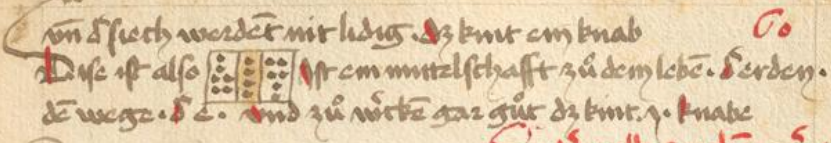 vn̄ d̄ siech werdēt nit lidig . dz kint ein knab 60
Dise ist also Ist ein mittelschafft zů dem lebē . d̄ erden .
dē wege . d̄ e . vnd zů wꝛ̄kē gar gůt dz kint . ꝛ . knabe